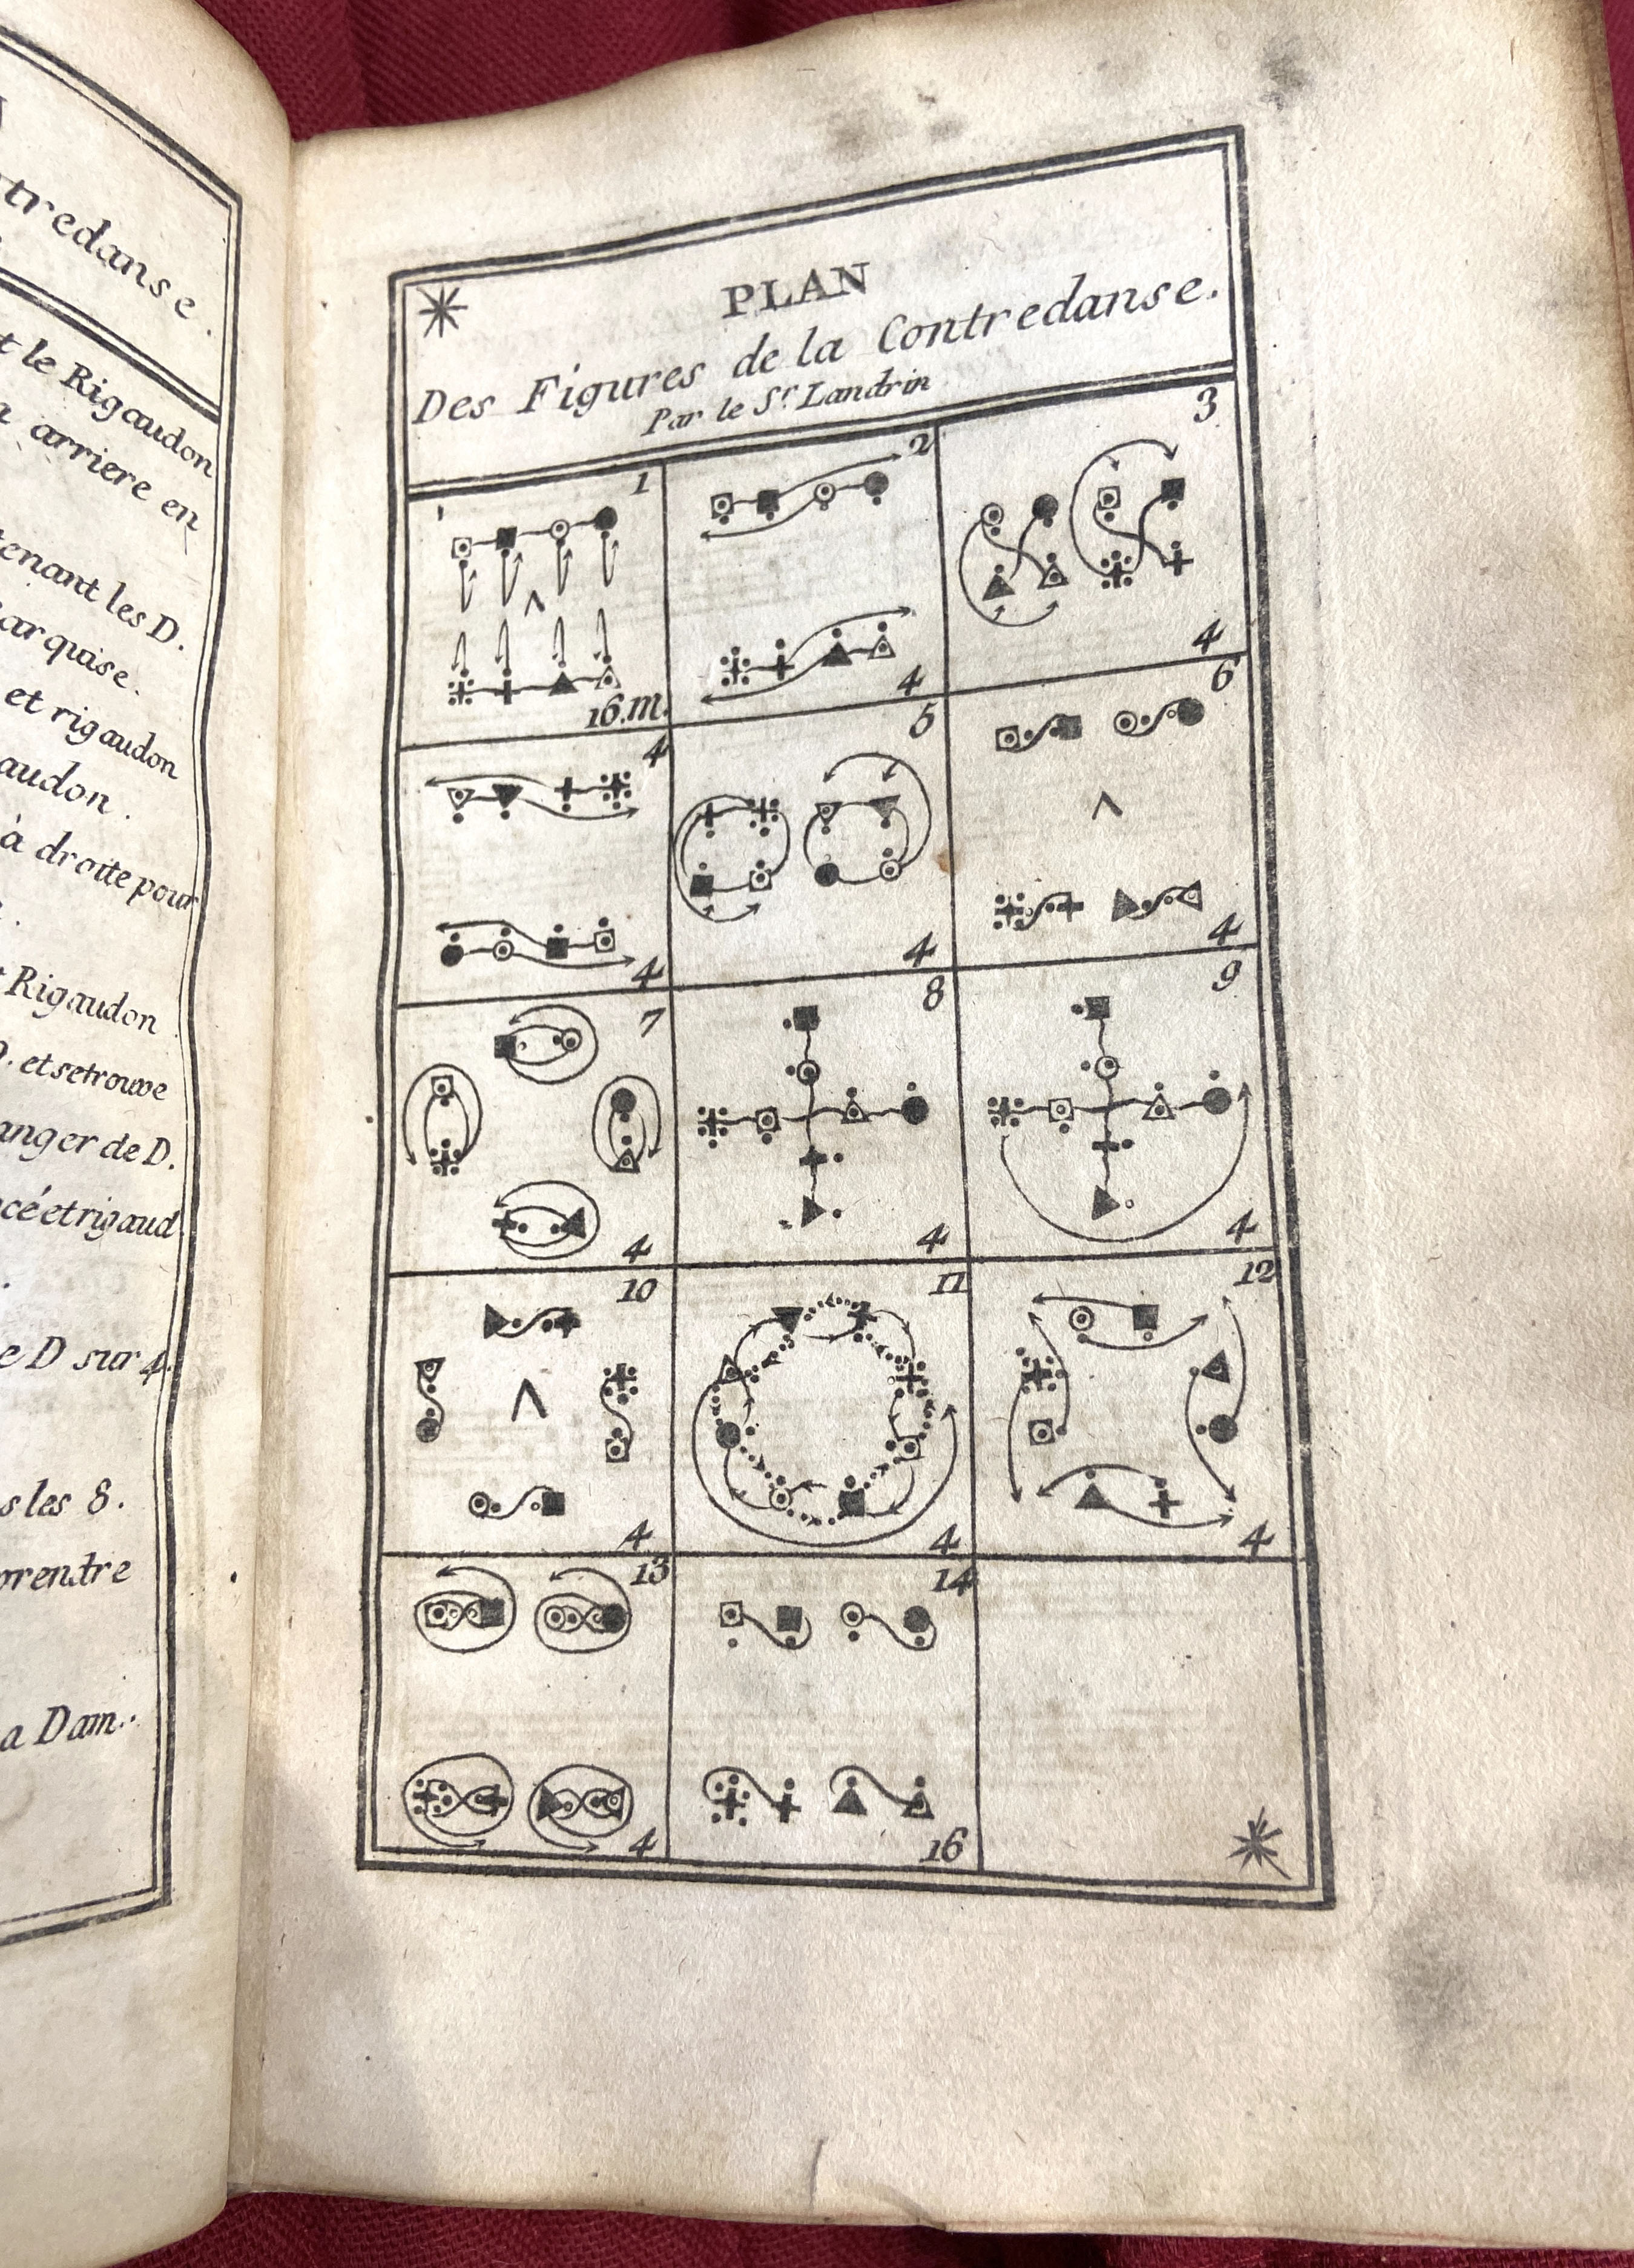 tredanse.
t le Rigaudon
a arriere en
tenant les D.
arquise.
et rigaudon
audon.
à droite pour
Rigaudon
. et se trouve
anger de D.
cé et rigaud.
e D sur 4.
s les 8.
prendre
a Dam.
PLAN
Des Figures de la Contredanse.
Par le Sr. Landrin
1
16.m.
2
4
3
4
4
4
5
4
6
4
7
4
8
4
9
4
10
4
11
4
12
4
13
4
14
16